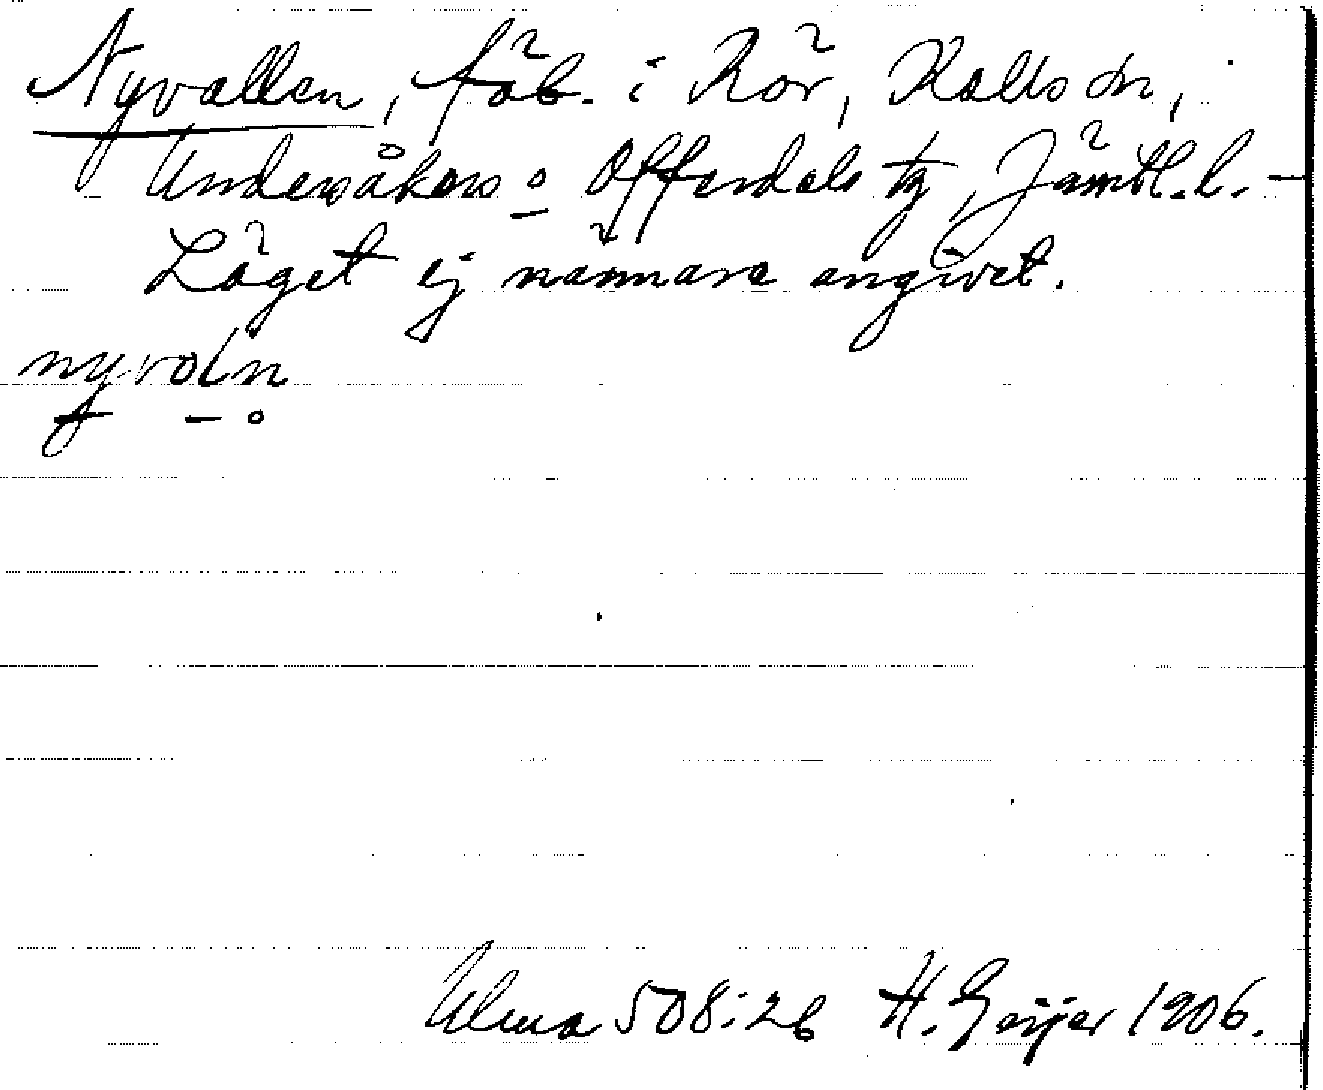 Nyvallen, fäb. i Rör, Kalls sn,
Undersåkers o Offerdals tg, Jämtl. l. –
Läget ej närmare angivet.
nyvoln
Ulma 508:26 H. Geijer 1906.